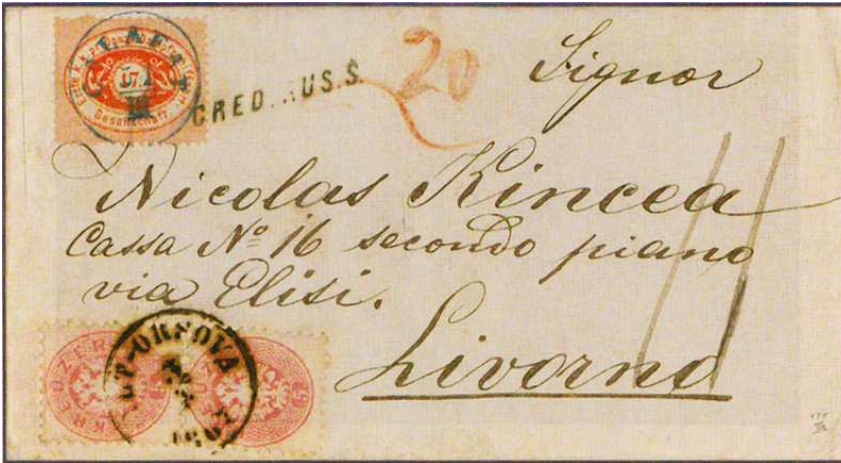 17.
CRED. AUS.S.
20
Signor
Nicolas Kincea
Cassa Nº 16 secondo piano
via Elisi.
Livorno
KREUZER
ORSOVA
5